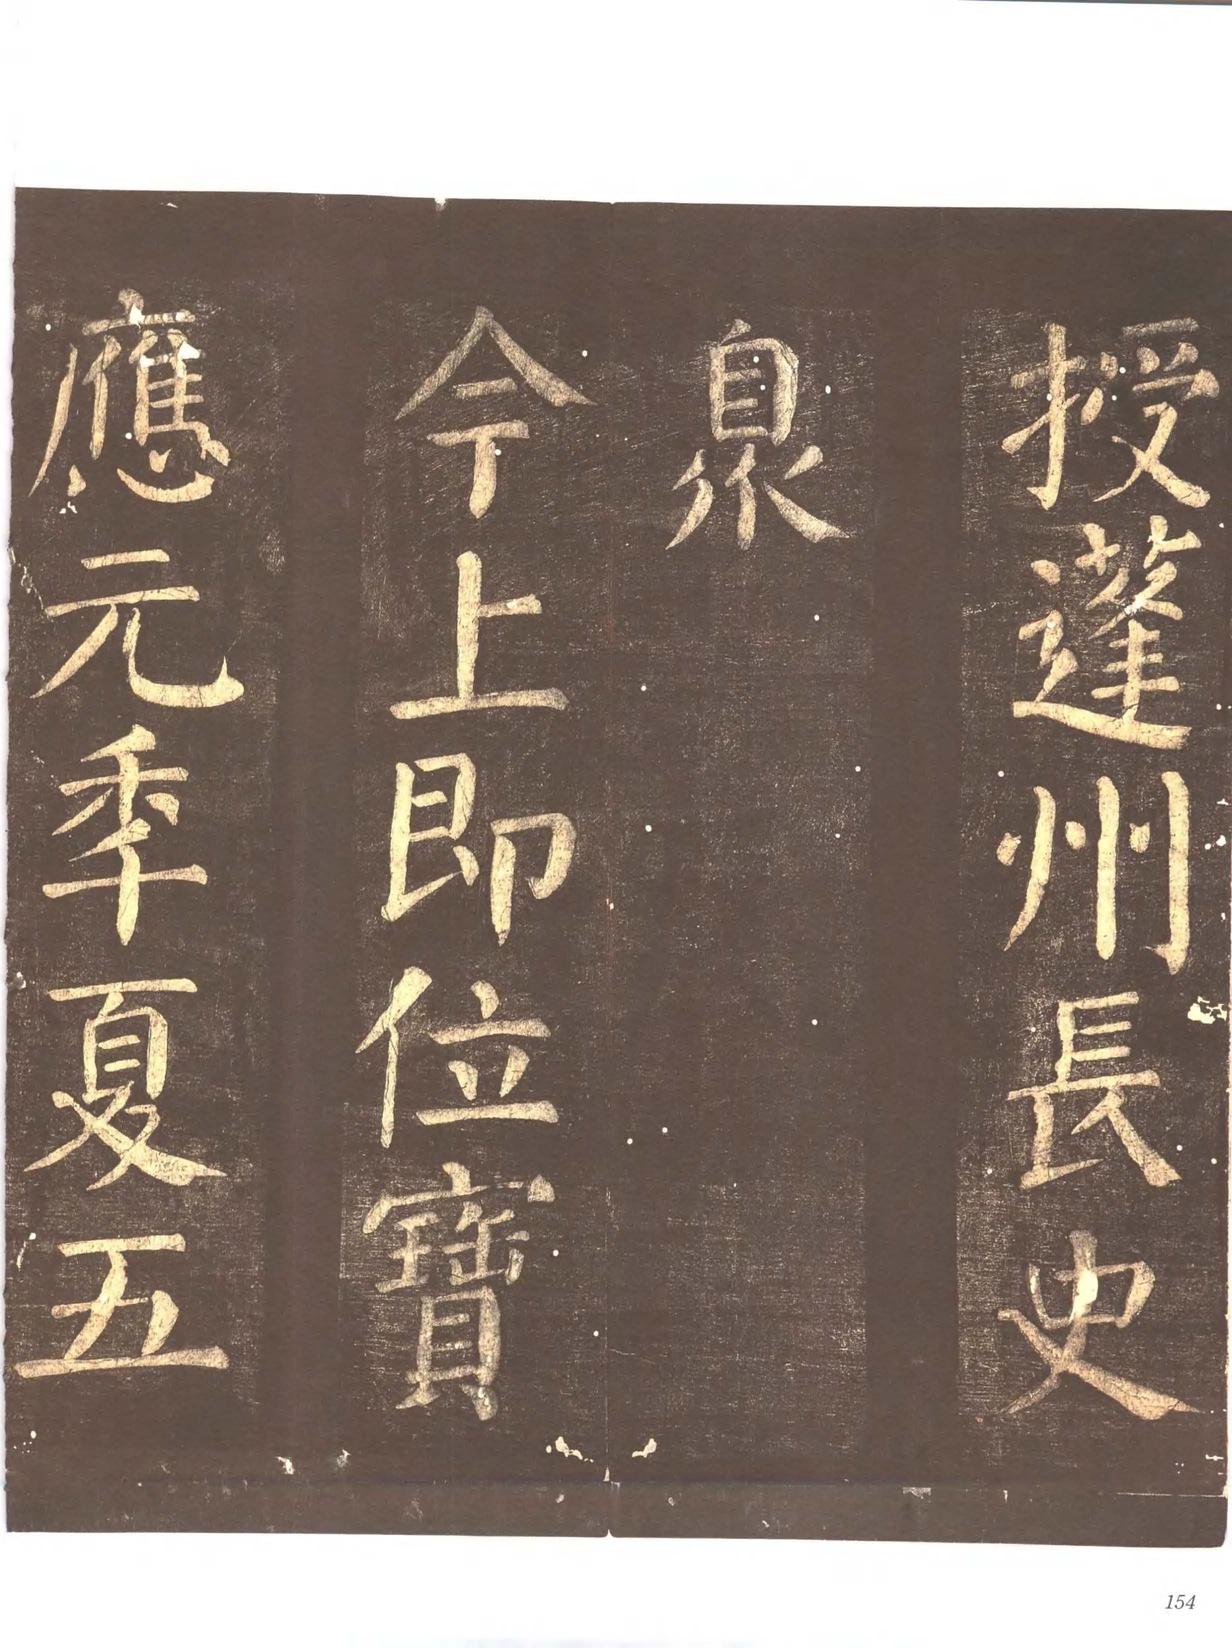 授蓬州長史
泉
今上即位寶
應元年夏五
154